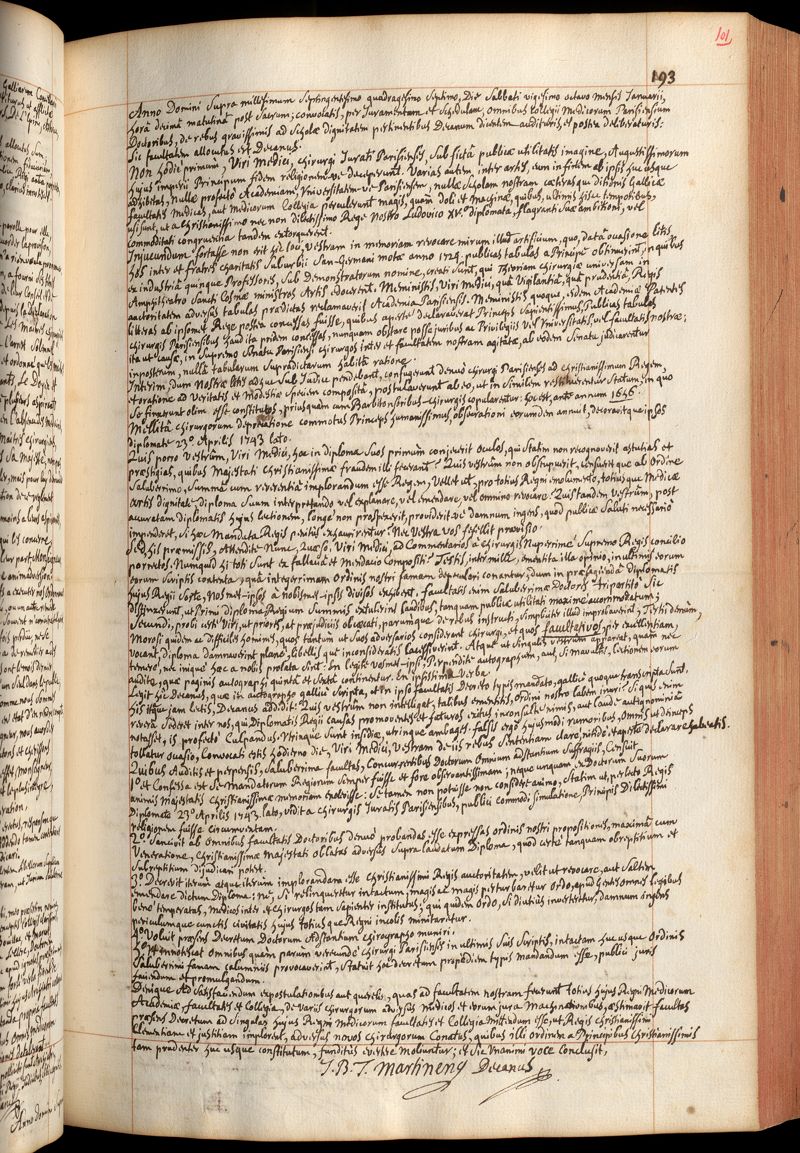 101
193
Anno Domini Supra millesimum Septingentesimo quadragesimo Septimo, Die Sabbati vigesimo octavo mensis Januarii,
horâ decimâ matutinâ post Sacrum, convocatis, per Juramentum et Schedulam, omnibus Collegii Medicorum Parisiensium
Doctoribus, de rebus gravissimis ad Scholae dignitatem pertinentibus Decanum dicentem audituris, et postea deliberaturis:
Sic facultatem allocutus est Decanus.
Non hodiè primùm, Viri Medici, chirurgi Jurati Parisienses, Sub fictâ publicae utilitatis imagine, Augustissimorum
hujus imperii Principum fidem religionemve deceperunt. Varias autem, inter artes, eum in finem ab ipsis huc usque
adhibitas, Nullae profectò Academiam, Universitatemve Parisiensem, nullae Scholam nostram caeterasque ditionis Gallicae
facultates Medicas, aut Medicorum Collegia perculerunt magis, quàm doli et machinae, quibus, ultimis hisce temporibus,
usi sunt, ut a Christianissimo nec non dilectissimo Rege Nostro Ludovico XV.° diplomata, flagranti suae ambitioni, vel
commoditati congruentia tandem extorquerent.
Injucundum fortasse non erit hic loci, vestram in memoriam revocare mirum illud artificium, quo, datâ occasione litis
hos inter et fratres charitatis Suburbii San-Germani motae anno 1724. publicas tabulas a Principe obtinuerint, in quibus
ex industriâ quinque Professores, Sub Demonstratorum nomine, creati sunt, qui Theoriam chirurgiae universam in
Amphiteatro Sancti Cosmae ministros Artis edocerent. Meministis, Viri Medici, quâ Vigilantiâ, quâ prudentiâ, Regis
auctoritatem adversùs tabulas praedictas reclamaverit Academia Parisiensis. Meministis quoque, eidem Academiae Patentes
litteras ab ipsomet Rege postea concessas fuisse, quibus apertè declaraverat Princeps Sapientissimus, Sublicias tabulas
chirurgis Parisiensibus haud ita pridem concessas, nunquam obstare posse juribus ac Privilegiis vel Universitatis, vel facultatis nostrae;
ita ut Causae, in Supremo Senatu Parisiensi chirurgos inter et facultatem nostram agitatae, ab eodem Senatu judicarentur
inposterum, nullâ tabularum Supradictarum habitâ ratione.
Interim, dum Nostrae lites adhuc Sub Judice penderent, confugerunt denuò chirurgi Parisienses ad christianissimum Regem,
et oratione ad Veritatis et Modestiae Speciem compositâ, postulaverunt ab eo, ut in Similem restituerentur Statum, in quo
Se finxerunt olim esse constitutos, priusquam cum Barbitonsoribus chirurgis copularentur: hoc est, antè annum 1656.
Mellitâ chirurgorum deprecatione commotus Princeps humanissimus obsecrationi eorumdem annuit, decoravitque ipsos
diplomate 23.° Aprilis 1743 lato.
Quis porro vestrûm, Viri Medici, hoc in diploma Suos primùm conjecerit oculos, qui statim non recognoverit astutias et
praestigias, quibus Majestati Christianissimae fraudem illi fecerunt? Quis vestrûm non obstupuerit, censueritque ab Ordine
Saluberrimo, Summâ cum reverentiâ implorandum esse Regem, Vellet ut, pro totius Regni emolumento, totiusque Medicae
Artis dignitate, diploma Suum interpretando vel explanare, vel emendare, vel omnino revocare? Quis tandem vestrûm, post
accuratam diplomatis hujus lectionem, longè non prospexerit, provideritve damnum ingens, quod publicae Saluti necessariò
impenderet, si haec Mandata Regis penitùs exhaurirentur? Nec vestra vos fefellit praevisio.
Sed his praemissis, Attendite Nunc, Quaeso, Viri Medici, ad Commentarios a Chirurgis Nuperrimè Supremo Regis concilio
porrectos. Nunquid hi toti Sunt ex fallaciâ et Mendacio Compositi? Testis, inter mille, ementita illa opinio, in ultimis eorum
eorum Scriptis contenta, quâ integerrimam Ordinis nostri famam depeculari conantur; dum in praefagiendâ diplomatis
hujus Regii Sorte, Nosmet-ipsos à nobismet-ipsis divisos exhibent, facultatis enim Saluberrimae Doctores tripartitò Sic
distinxerunt, ut Primi diploma Regium Summis extulerint laudibus, tanquam publicae utilitati maximè accommodatum;
Secundi, probi certè Viri, ut priores, at praejudiciis obcaecati, parumque de rebus instructi, simpliciter illud improbaverint, Tertii demùm,
Morosi quidem ac difficiles homines, quos tantùm ut Suos adversarios considerant chirurgi, et quos facultativos, per excellentiam,
vocant, diploma damnaverint planè, libellisque inconsideratis lacessiverint. Atque ut singulis vestrûm appareat, quàm nec
temerè, nec iniquè haec a nobis prolata sint: En legite vosmet-ipsi, Perpendite autographum, aut, si mavultis, lectionem eorum
audite, quae paginis autographi quintâ et Sextâ continentur. En ipsissima verba.
Legit hic Decanus, quae in autographo gallicè Scripta, ut in ipso facultatis Decreto typis mandato, gallicè quoque transcripta Sunt.
His itaque jam lectis, Decanus addidit: Quis vestrûm non intelligat, talibus ementitis, Ordini nostro labem inuri? Si quis enim
reverâ Sederet inter nos, qui Diplomatis Regii causas promoventes et futuros exitus inconsultè nimis, aut laudis autignominiâ
notasset, is profectò Culpandus. Utrinque Sunt insidiae, utrinque ambages. Falsis ergò hujusmodi rumoribus, Omnis ut deinceps
tollatur occasio, Convocati estis hodierno die, Viri Medici, vestram de iis rebus Sententiam clarè, nitidè et apertè declarare habeatis.
Quibus Auditis et perpensis, Saluberrima facultas, Concurrentibus Doctorum Omnium adstantium Suffragiis, Censuit
1.° et Confessa est Se Mandatorum Regiorum Semper fuisse et fore observantissimam; neque unquam ex Doctorum Suorum
animis Majestatis Christianissimae memoriam excidisse: Se tamen non potuisse non considere animo, Statim ut, perlecto Regis
Diplomate 23.° Aprilis 1743. lato, vidit a Chirurgis Juratis Parisiensibus, publici commodi simulatione, Principis Dilectissimi
religionem fuisse circumventam.
2.° Sancivit ab Omnibus facultatis Doctoribus denuò probandas esse expressas ordinis nostri propositiones, maximâ cum
Veneratione, christianissimae Majestati oblatas adversùs Supra laudatum Diploma, quod certè tanquam obreptitium et
Subreptitium dijudicari potest.
3.° Decrevit iterùm atque iterùm implorandam esse Christianissimi Regis auctoritatem, velit ut revocare, aut Saltem
emendare dictum Diploma: ne, Si relinqueretur intactum, magis ac magis perturbaretur Ordo, apud Gentes omnes legibus
benè temperatas, medicos inter et chirurgos tam sapienter institutus; qui quidem ordo, Si diutiùs inverteretur, damnum ingens
periculumque cunctis civitatis hujus totiusque Regni incolis minitaretur.
4.° Voluit praesens Decretum Doctorum Adstantium chirographo muniri.
5.° Ut Annotescat omnibus quàm parùm verecundè chirurgi Parisienses in ultimis Suis Scriptis, intactam huc usque Ordinis
Saluberrimi famam calumniis provocaverint, Statuit hoc decretum propediem typis mandandum esse, publici juris
faciendum et promulgandum.
Denique Ad Satisfaciendum expostulationibus aut querelis, quas ad facultatem nostram fecerunt totius hujus Regni Medicorum
Academiae, facultates et Collegia, de variis chirurgorum adversùs medicos et eorum jura Machinationibus, aestimavit facultas
praesens Decretum ad Singulas hujus Regni Medicorum facultates et Collegia Mittendum esse, ut Regis Christianissimi
Clementiam et justitiam implorent, adversus novos Chirurgorum Conatus, quibus illi ordinem a Principibus Christianissimis
tam prudenter huc usque constitutum, funditùs evertere moliuntur; et Sic Unanimi voce Conclusit,
J. B. T. Martinenq Decanus